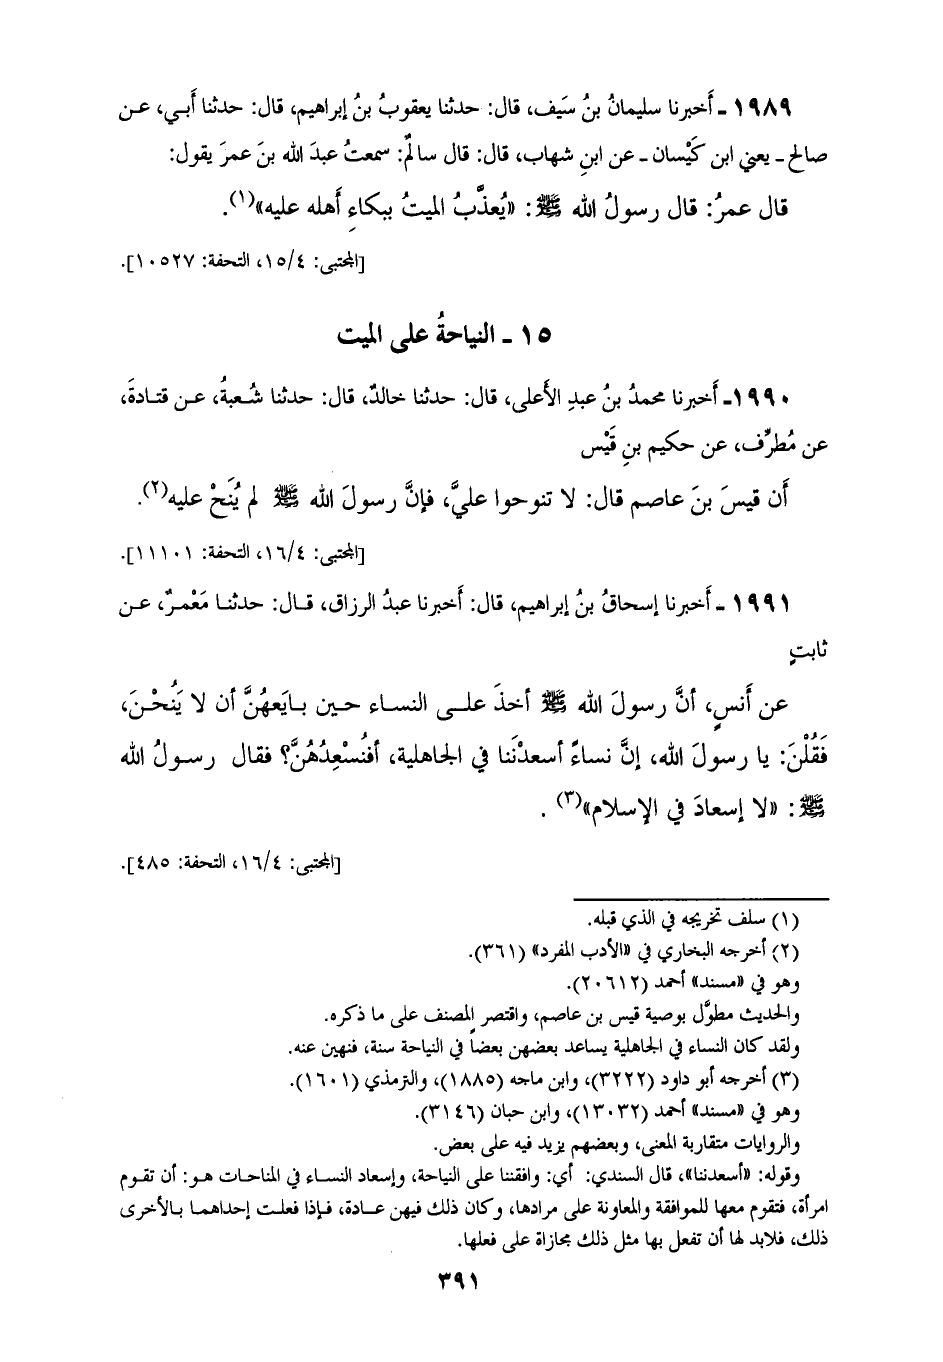 ١٩٨٩ ـ أَخبرنا سليمانُ بنُ سَيف، قال: حدثنا يعقوبُ بنُ إبراهيم، قال: حدثنا أَبي، عن
صالح ـ يعني ابن كَيْسان ـ عن ابنِ شهاب، قال: قال سالمٌ: سمعتُ عبدَ الله بنَ عمرَ يقول:
قال عمرُ: قال رسولُ الله ﷺ: «يُعذَّبُ الميتُ ببكاءِ أَهله عليه»(١).
[المجتبى: ١٥/٤، التحفة: ١٠٥٢٧].
١٥ ـ النياحةُ على الميت
١٩٩٠ـ أَخبرنا محمدُ بنُ عبدِ الأَعلى، قال: حدثنا خالدٌ، قال: حدثنا شُعبةُ، عن قتادةَ،
عن مُطرِّف، عن حكيم بنِ قَيْس
أَن قيسَ بنَ عاصم قال: لا تنوحوا عليَّ، فإنَّ رسولَ الله ﷺ لم يُنَحْ عليه(٢).
[المجتبى: ١٦/٤، التحفة: ١١١٠١].
١٩٩١ ـ أَخبرنا إسحاقُ بنُ إبراهيم، قال: أَخبرنا عبدُ الرزاق، قال: حدثنا مَعْمرٌ، عن
ثابتٍ
عن أَنسٍ، أنَّ رسولَ الله ﷺ أخذَ على النساء حين بايَعهُنَّ أن لا يَنُحْنَ،
فَقُلْنَ: يا رسولَ الله، إنَّ نساءً أسعدْنَنا في الجاهلية، أفنُسْعِدُهُنَّ؟ فقال رسولُ الله
ﷺ: «لا إسعادَ في الإسلام»(٣) .
[المجتبى: ١٦/٤، التحفة: ٤٨٥].
(١) سلف تخريجه في الذي قبله.
(٢) أخرجه البخاري في «الأدب المفرد» (٣٦١).
وهو في «مسند» أحمد (٢٠٦١٢).
والحديث مطوَّل بوصية قيس بن عاصم، واقتصر المصنف على ما ذكره.
ولقد كان النساء في الجاهلية يساعد بعضهن بعضاً في النياحة سنة، فنهين عنه.
(٣) أخرجه أبو داود (٣٢٢٢)، وابن ماجه (١٨٨٥)، والترمذي (١٦٠١).
وهو في «مسند» أحمد (١٣٠٣٢)، وابن حبان (٣١٤٦).
والروايات متقاربة المعنى، وبعضهم يزيد فيه على بعض.
وقوله: «أسعدننا»، قال السندي: أي: وافقننا على النياحة، وإسعاد النساء في المناحات هو: أن تقوم
امرأة، فتقوم معها للموافقة والمعاونة على مرادها، وكان ذلك فيهن عادة، فإذا فعلت إحداهما بالأخرى
ذلك، فلابد لها أن تفعل بها مثل ذلك مجازاة على فعلها.
٣٩١